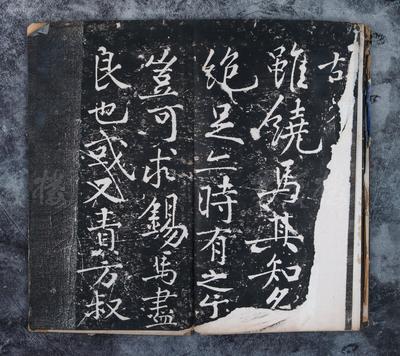 雖饒馬其知名
絕足亦時有之尔
豈可求錫馬盡
良也或又責方叔